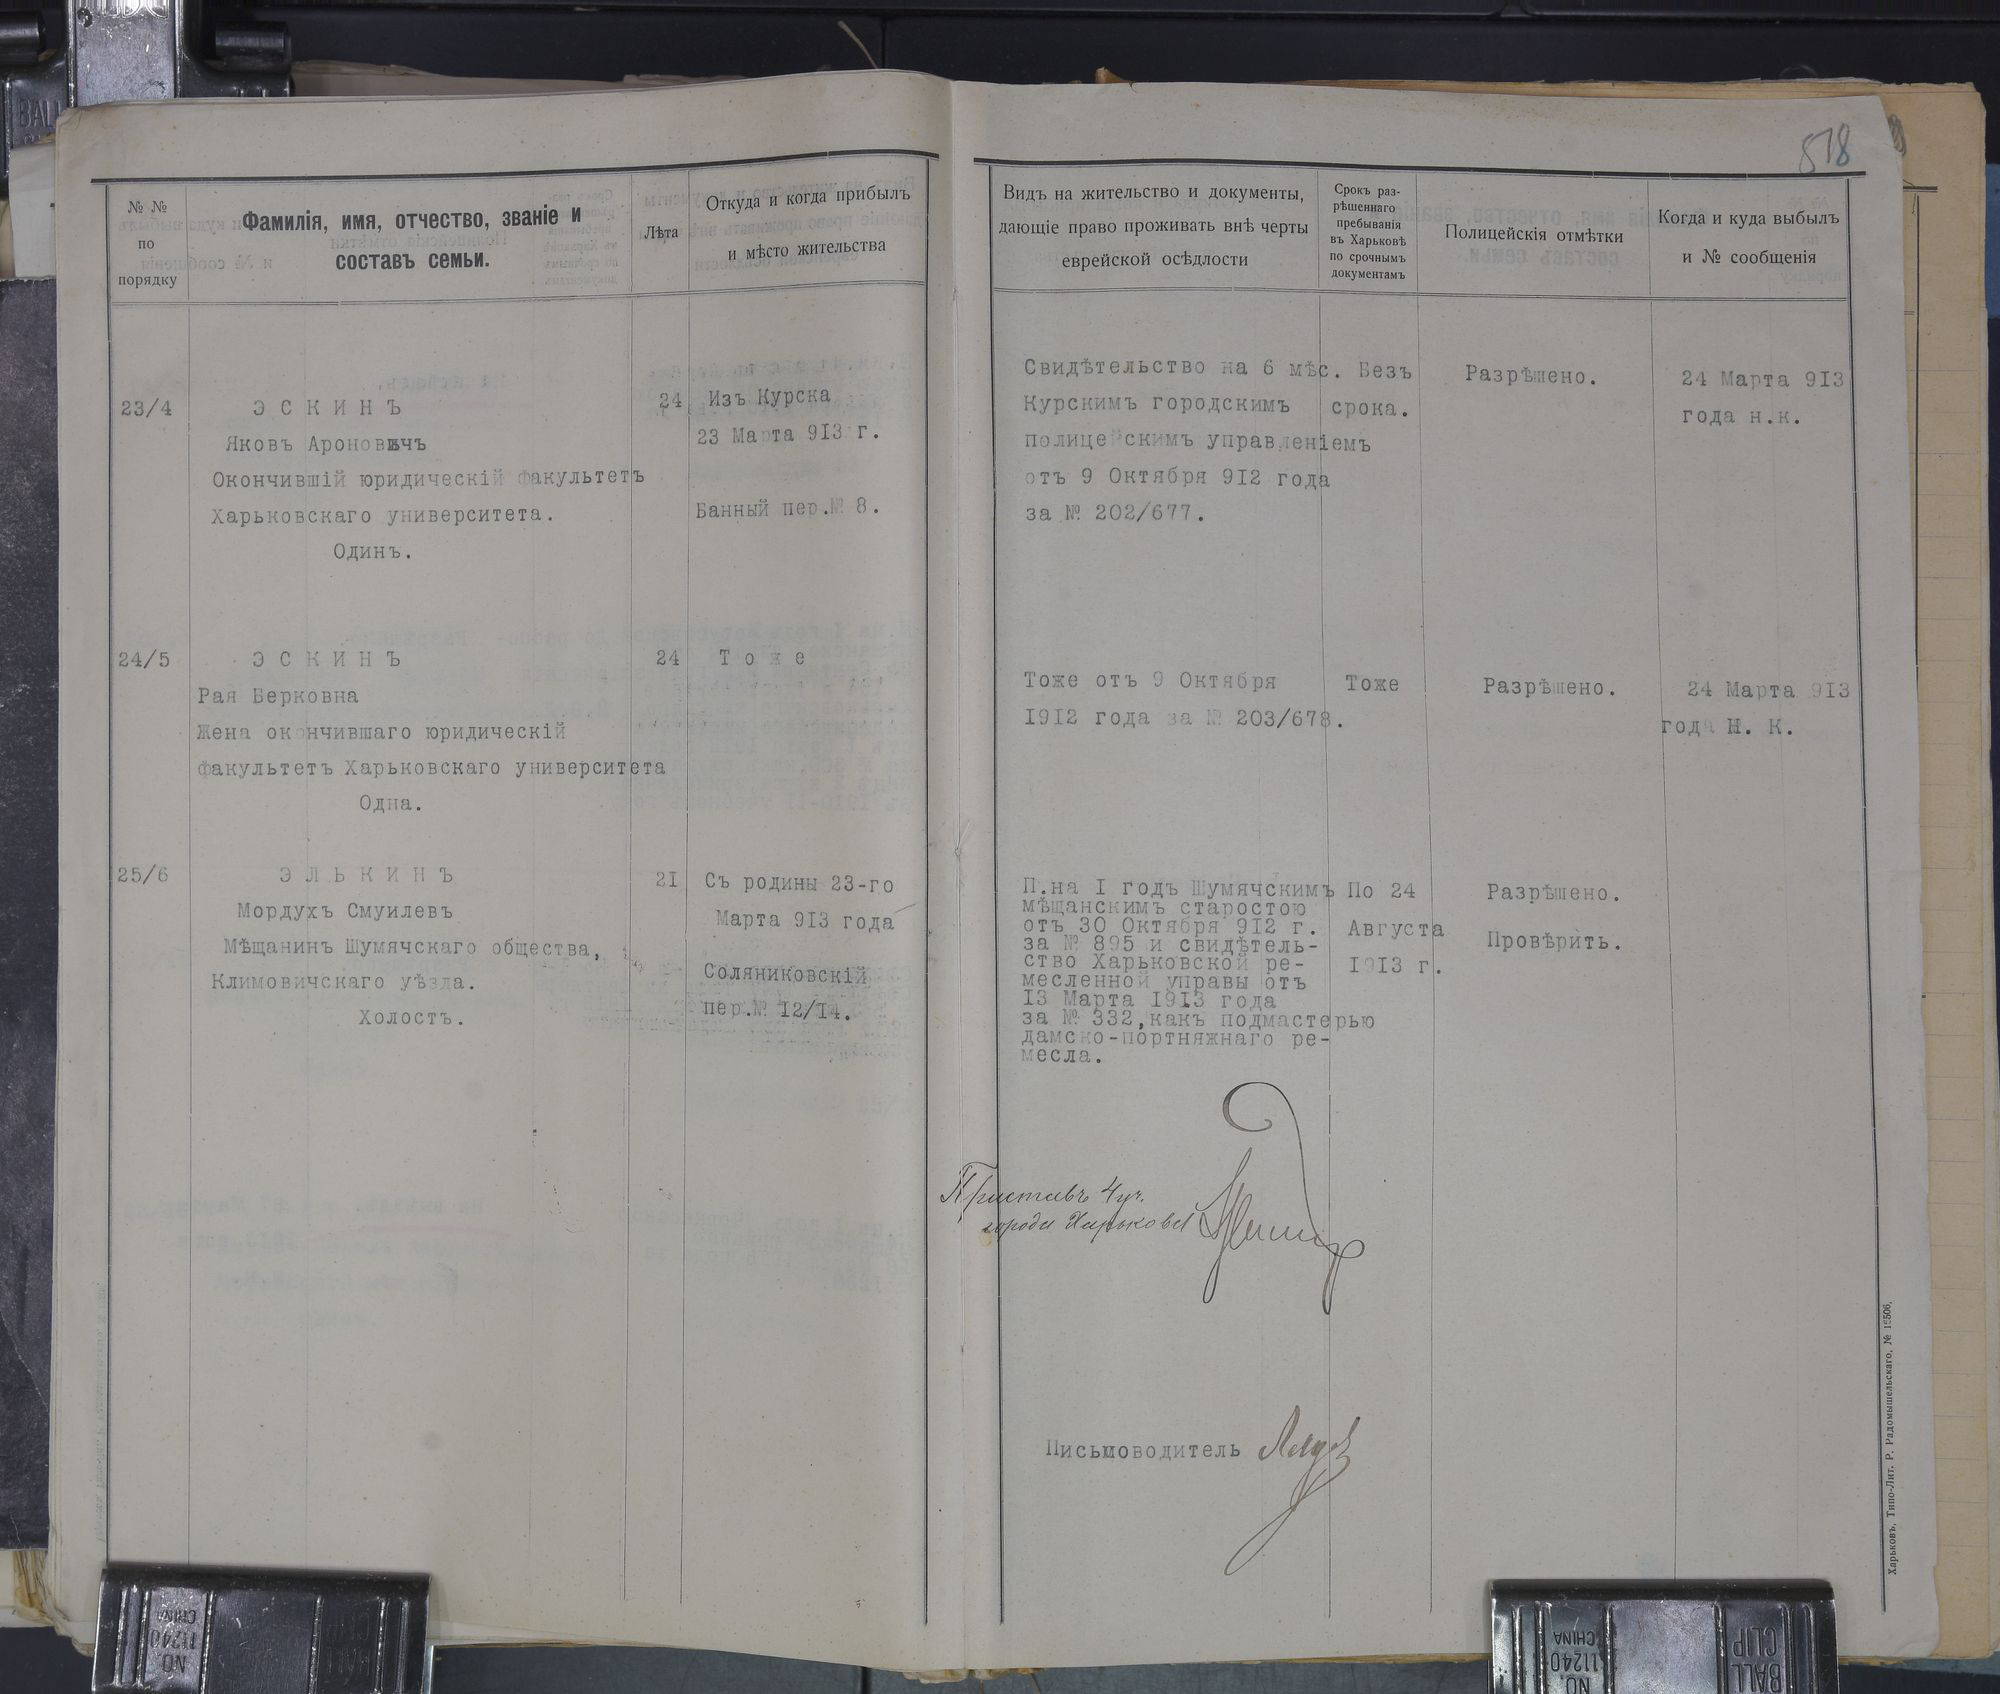 578
№ №
по
порядку
Фамилія, имя, отчество, званіе и
составъ семьи.
Лѣта
Откуда и когда прибылъ
и мѣсто жительства
Видъ на жительство и документы,
дающіе право проживать внѣ черты
еврейской осѣдлости
Срокъ раз-
рѣшеннаго
пребыванія
въ Харьковѣ
по срочнымъ
документамъ
Полицейскія отмѣтки
Когда и куда выбылъ
и № сообщенія
23/4
ЭСКИНЪ
Яковъ Ароновичъ
Окончившій юридическій факультетъ
Харьковскаго университета.
Одинъ.
24
Изъ Курска
23 Марта 913 г.
Банный пер.№ 8.
Свидѣтельство на 6 мѣс.
Курскимъ городскимъ
полицейскимъ управленіемъ
отъ 9 Октября 912 года
за № 202/677.
Безъ
срока.
Разрѣшено.
24 Марта 913
года н.к.
24/5
ЭСКИНЪ
Рая Берковна
Жена окончившаго юридическій
факультетъ Харьковскаго университета
Одна.
24
Тоже
Тоже отъ 9 Октября
1912 года за № 203/678.
Тоже
Разрѣшено.
24 Марта 913
года Н. К.
25/6
ЭЛЬКИНЪ
Мордухъ Смуилевъ
Мѣщанинъ Шумячскаго общества,
Климовичскаго уѣзда.
Холостъ.
21
Съ родины 23-го
Марта 913 года
Соляниковскій
пер.№ 12/14.
П.на I годъ Шумячскимъ
мѣщанскимъ старостою
отъ 30 Октября 912 г.
за № 895 и свидѣтель-
ство Харьковской ре-
месленной управы отъ
13 Марта 1913 года
за № 332,какъ подмастерью
дамско-портняжнаго ре-
месла.
По 24
Августа
1913 г.
Разрѣшено.
Провѣрить.
Приставъ 4 уч.
города Харькова
Письмоводитель
Харьковъ, Типо-Лит. Р. Радомышельскаго, №
BALL
CLIP
NO.
11240
CHINA
BALL
CLIP
NO.
11240
CHINA
BALL